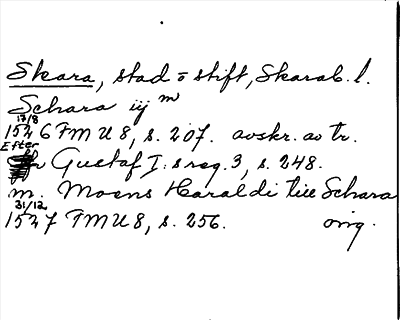 Skara, stad o stift, Skarab. l.
Schara iij m
17/8
1526 FMU 8, s. 207. avskr. av tr.
Efter Gustaf I:s reg. 3, s. 248.
m. Moens Haraldi till Schara
31/12
1527 FMU 8, s. 256. orig.